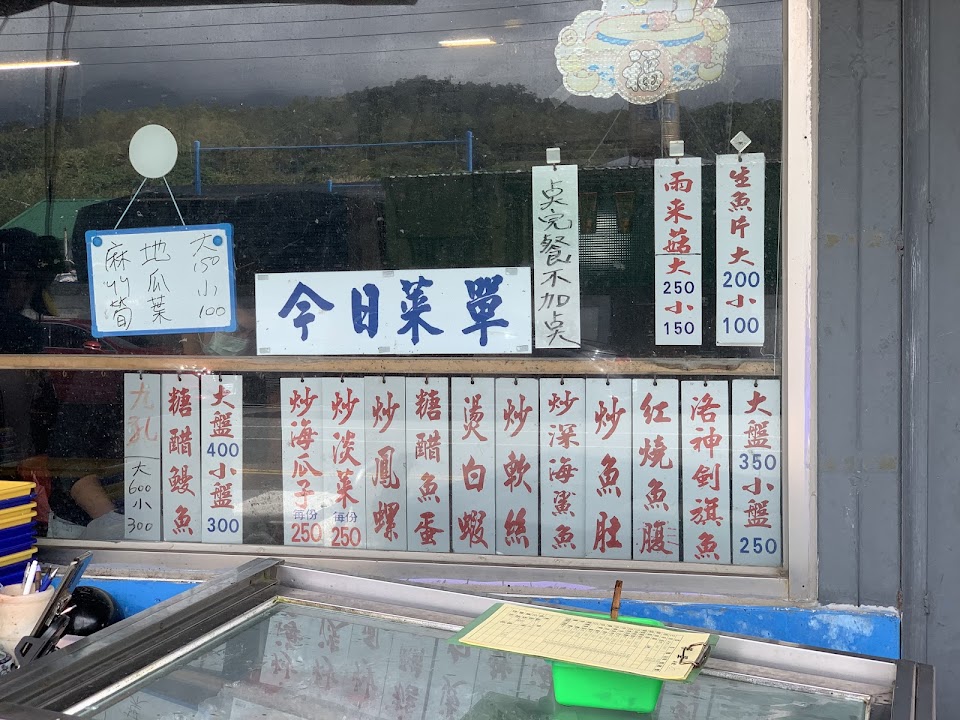 福
生魚片大200小100
雨来菇大250小150
点完餐不加点
今日菜單
大150小100
地瓜葉
麻竹筍
大盤350小盤250
洛神劍旗魚
紅燒魚腹
炒魚肚
炒深海鯊魚
炒軟絲
燙白蝦
糖醋魚蛋
炒鳳螺
炒淡菜每份250
炒海瓜子每份250
大盤400小盤300
糖醋鰻魚
九孔大600小300